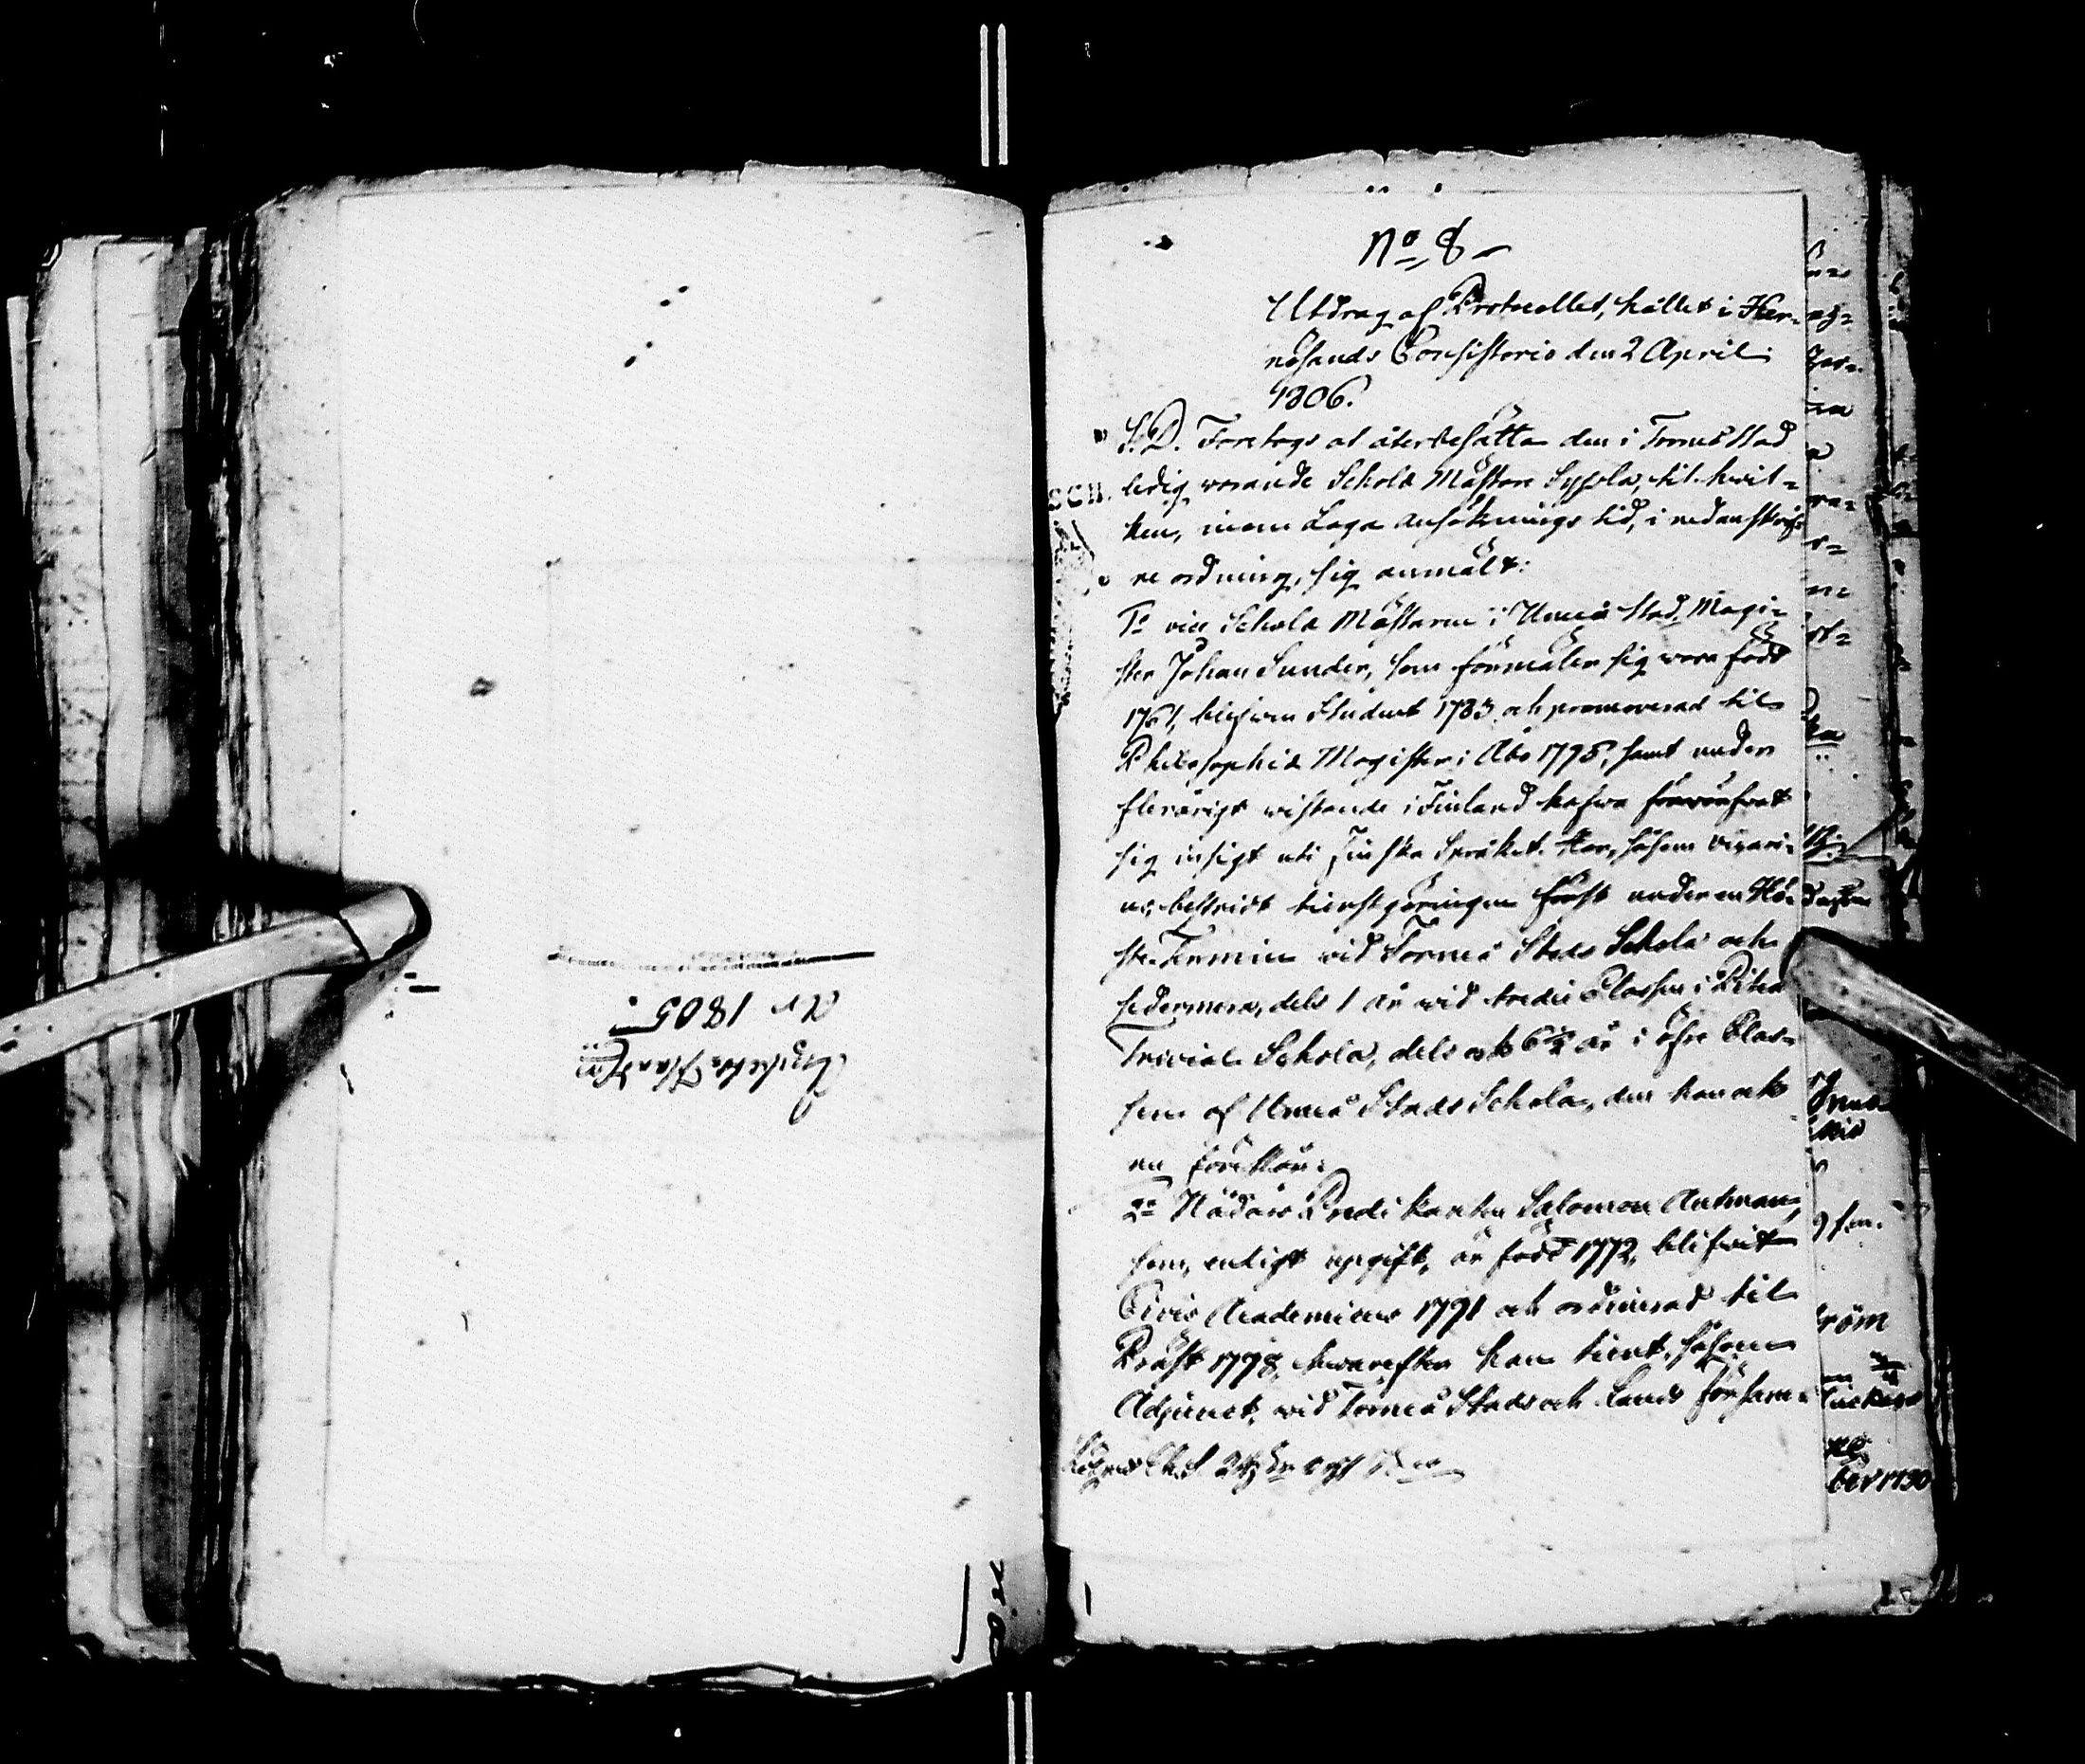 År 1805.
No 8
Utdrag af Protocollet, hållet i Her-
nösands Consistorio den 2 April
1806.
S. D. Företogs at återbesätta den i Torneå Stad
ledig warande Schola Mästare Syssla, til hwil-
ken, inom Laga ansöknings tid, i nedanskrif-
ne ordning, sig anmält:
1o vice Schola Mästaren i Umeå Stad, Magi-
ster Johan Sunder, som förmäler sig vara född
1761, blifwen Student 1783 och promoverad til
Philosophiæ Magister i Åbo 1795, samt under
flerårigt wistande i Finland hafwa förwärfwat
sig insigt uti Finska Språket. Har, såsom vicari-
us, bestridt tienstgöringen först under en Hö-
ste Termin vid Torneå Stads Schola och
sedermera, dels 1 år wid tredie Classen i Piteå
Trivial Schola, dels ock 6½ år i öfre Clas-
sen af Umeå Stads Schola, den han ock
nu förestår:
2o Nådårs Predikanten Salomon Antman,
som, enligt upgift, är född 1772, blifwit
Civis Academicus 1791 och ordinerad til
Präst 1798, hwarefter han tient, såsom
Adjunct, wid Torneå Stads och Lands Försam-